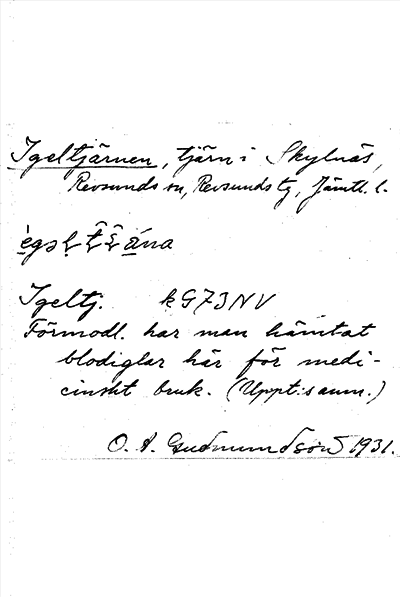 Igeltjärnen, tjärn i Skylnäs,
Revsunds sn, Revsunds tg, Jämtl. l.
Igeltj. kG73NV
Förmodl. har man hämtat
blodiglar här för medi-
cinskt bruk. (Uppt:s anm.)
O. A. Gudmundsson 1931.